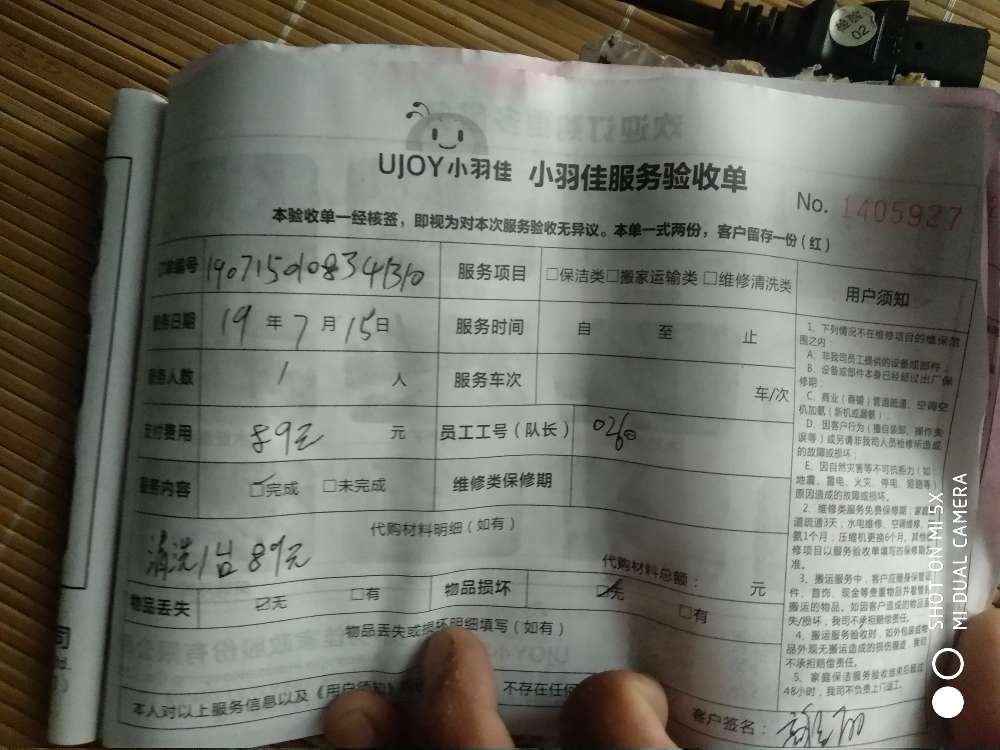 检验
02
UJOY小羽佳 小羽佳服务验收单
No. 1405927
本验收单一经核签，即视为对本次服务验收无异议。本单一式两份，客户留存一份（红）
订单编号
服务项目 □保洁类□搬家运输类 □维修清洗类
用户须知
服务日期 19 年 7 月 15 日 服务时间 自 至 止
服务人数 1 人 服务车次 车/次
支付费用 89元 元 员工工号（队长） 0260
服务内容 ☑完成 □未完成 维修类保修期
代购材料明细（如有）
清洗1台89元
代购材料总额： 元
物品丢失 ☑无 □有 物品损坏 ☑无 □有
物品丢失或损坏明细填写（如有）
本人对以上服务信息以及《用户须知》 不存在任何
客户签名：
1、下列情况不在维修项目的维保范
围之内：
A、非我司员工提供的设备或部件；
B、设备或部件本身已经超过出厂保
修期；
C、商业（商铺）管道疏通、空调空
机加氨（新机或漏氨）；
D、因客户行为（擅自装卸、操作失
误等）或另请非我司人员检修所造成
的故障或损坏；
E、因自然灾害等不可抗拒力（如
地震、雷电、火灾、停电、短路等）
原因造成的故障或损坏。
2、维修类服务免费保修期：家庭
道疏通3天；水电维修、空调维修、
氨1个月；压缩机更换6个月，其他
修项目以服务验收单填写的保修期
准。
3、搬运服务中，客户应随身保管
件、首饰、现金等贵重物品并看管
搬运的物品。如因客户造成的物品
失/损坏，我司不承担赔偿责任。
4、搬运服务验收时，如外包装或
品外观无搬运造成的损伤痕迹，我司
不承担赔偿责任。
5、家庭保洁服务验收结束后超过
48小时，我司不负责上门返工。
司
SHOT ON MI 5X
MI DUAL CAMERA